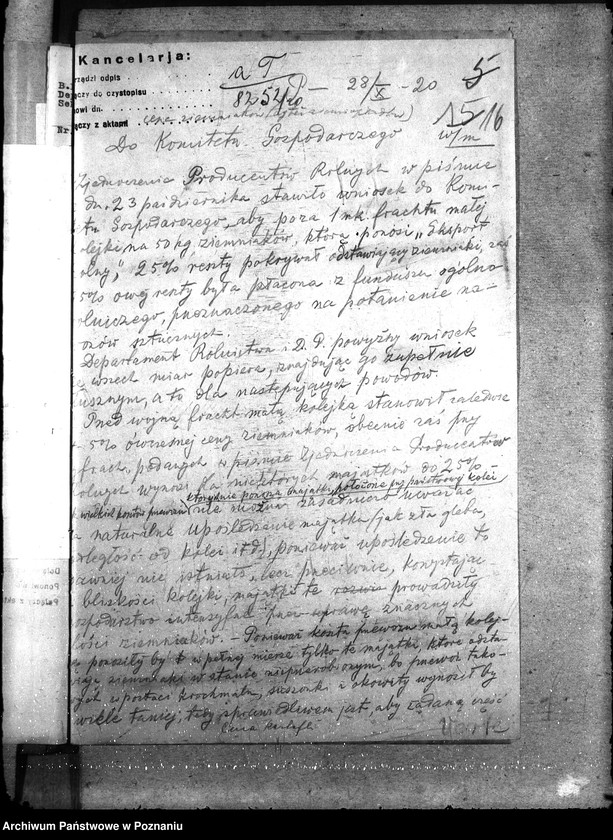 Kancelarja:
rządzi odpis
czy do czystopisu
nowi dn.
czy z aktami
B.
De
Se
Nr
a T
8252/20
28/X - 20
5
15/16
w/m
Do Komitetu Gospodarczego
Zjednoczenie Producentów Rolnych w piśmie
dn. 23 października stawiło wniosek do Komi-
tu Gospodarczego, aby poza 1 mk. frachtu małej
olejki na 50 kg ziemniaków, którą ponosi "Eksport
olny", 25% reszty pokrywał odstawiający ziemniaki, zaś
5% owej reszty była płacona z funduszu ogólno
olniczego, przeznaczonego na potanienie na-
ozów sztucznych.
Departament Rolnictwa i D. P. powyższy wniosek
wszech miar popiera, znajdując go zupełnie
usznym, a to dla następujących powodów.
Przed wojną fracht małą kolejką stanowił zaledwie
5% owczesnej ceny ziemniaków, obecnie zaś przy
frach. podanych w piśmie Zjednoczenia Producentów
olnych wynosi dla niektórych majątków do 25% -
wielkich kosztów przewozu nie można zasadniczo uważać
a naturalne upośledzenie majątku (jak zła gleba,
odległość od kolei itd), ponieważ upośledzenie to
dawniej nie istniało, lecz przeciwnie, korzystając
bliskości kolejki, majątki te prowadziły
ospodarstwo intensywne przez uprawę znacznych
lości ziemniaków. - Ponieważ koszta przewozu małą kolej-
ponosiły by w pełnej mierze tylko te majątki, które odsta-
wiają ziemniaki w stanie nieprzerobionym, bo przewóz tako-
wych w postaci krochmalu, suszonki i okowity wynosił by
wiele taniej, tedy sprawiedliwem jest, aby żądaną część
Archiwum Państwowe w Poznaniu